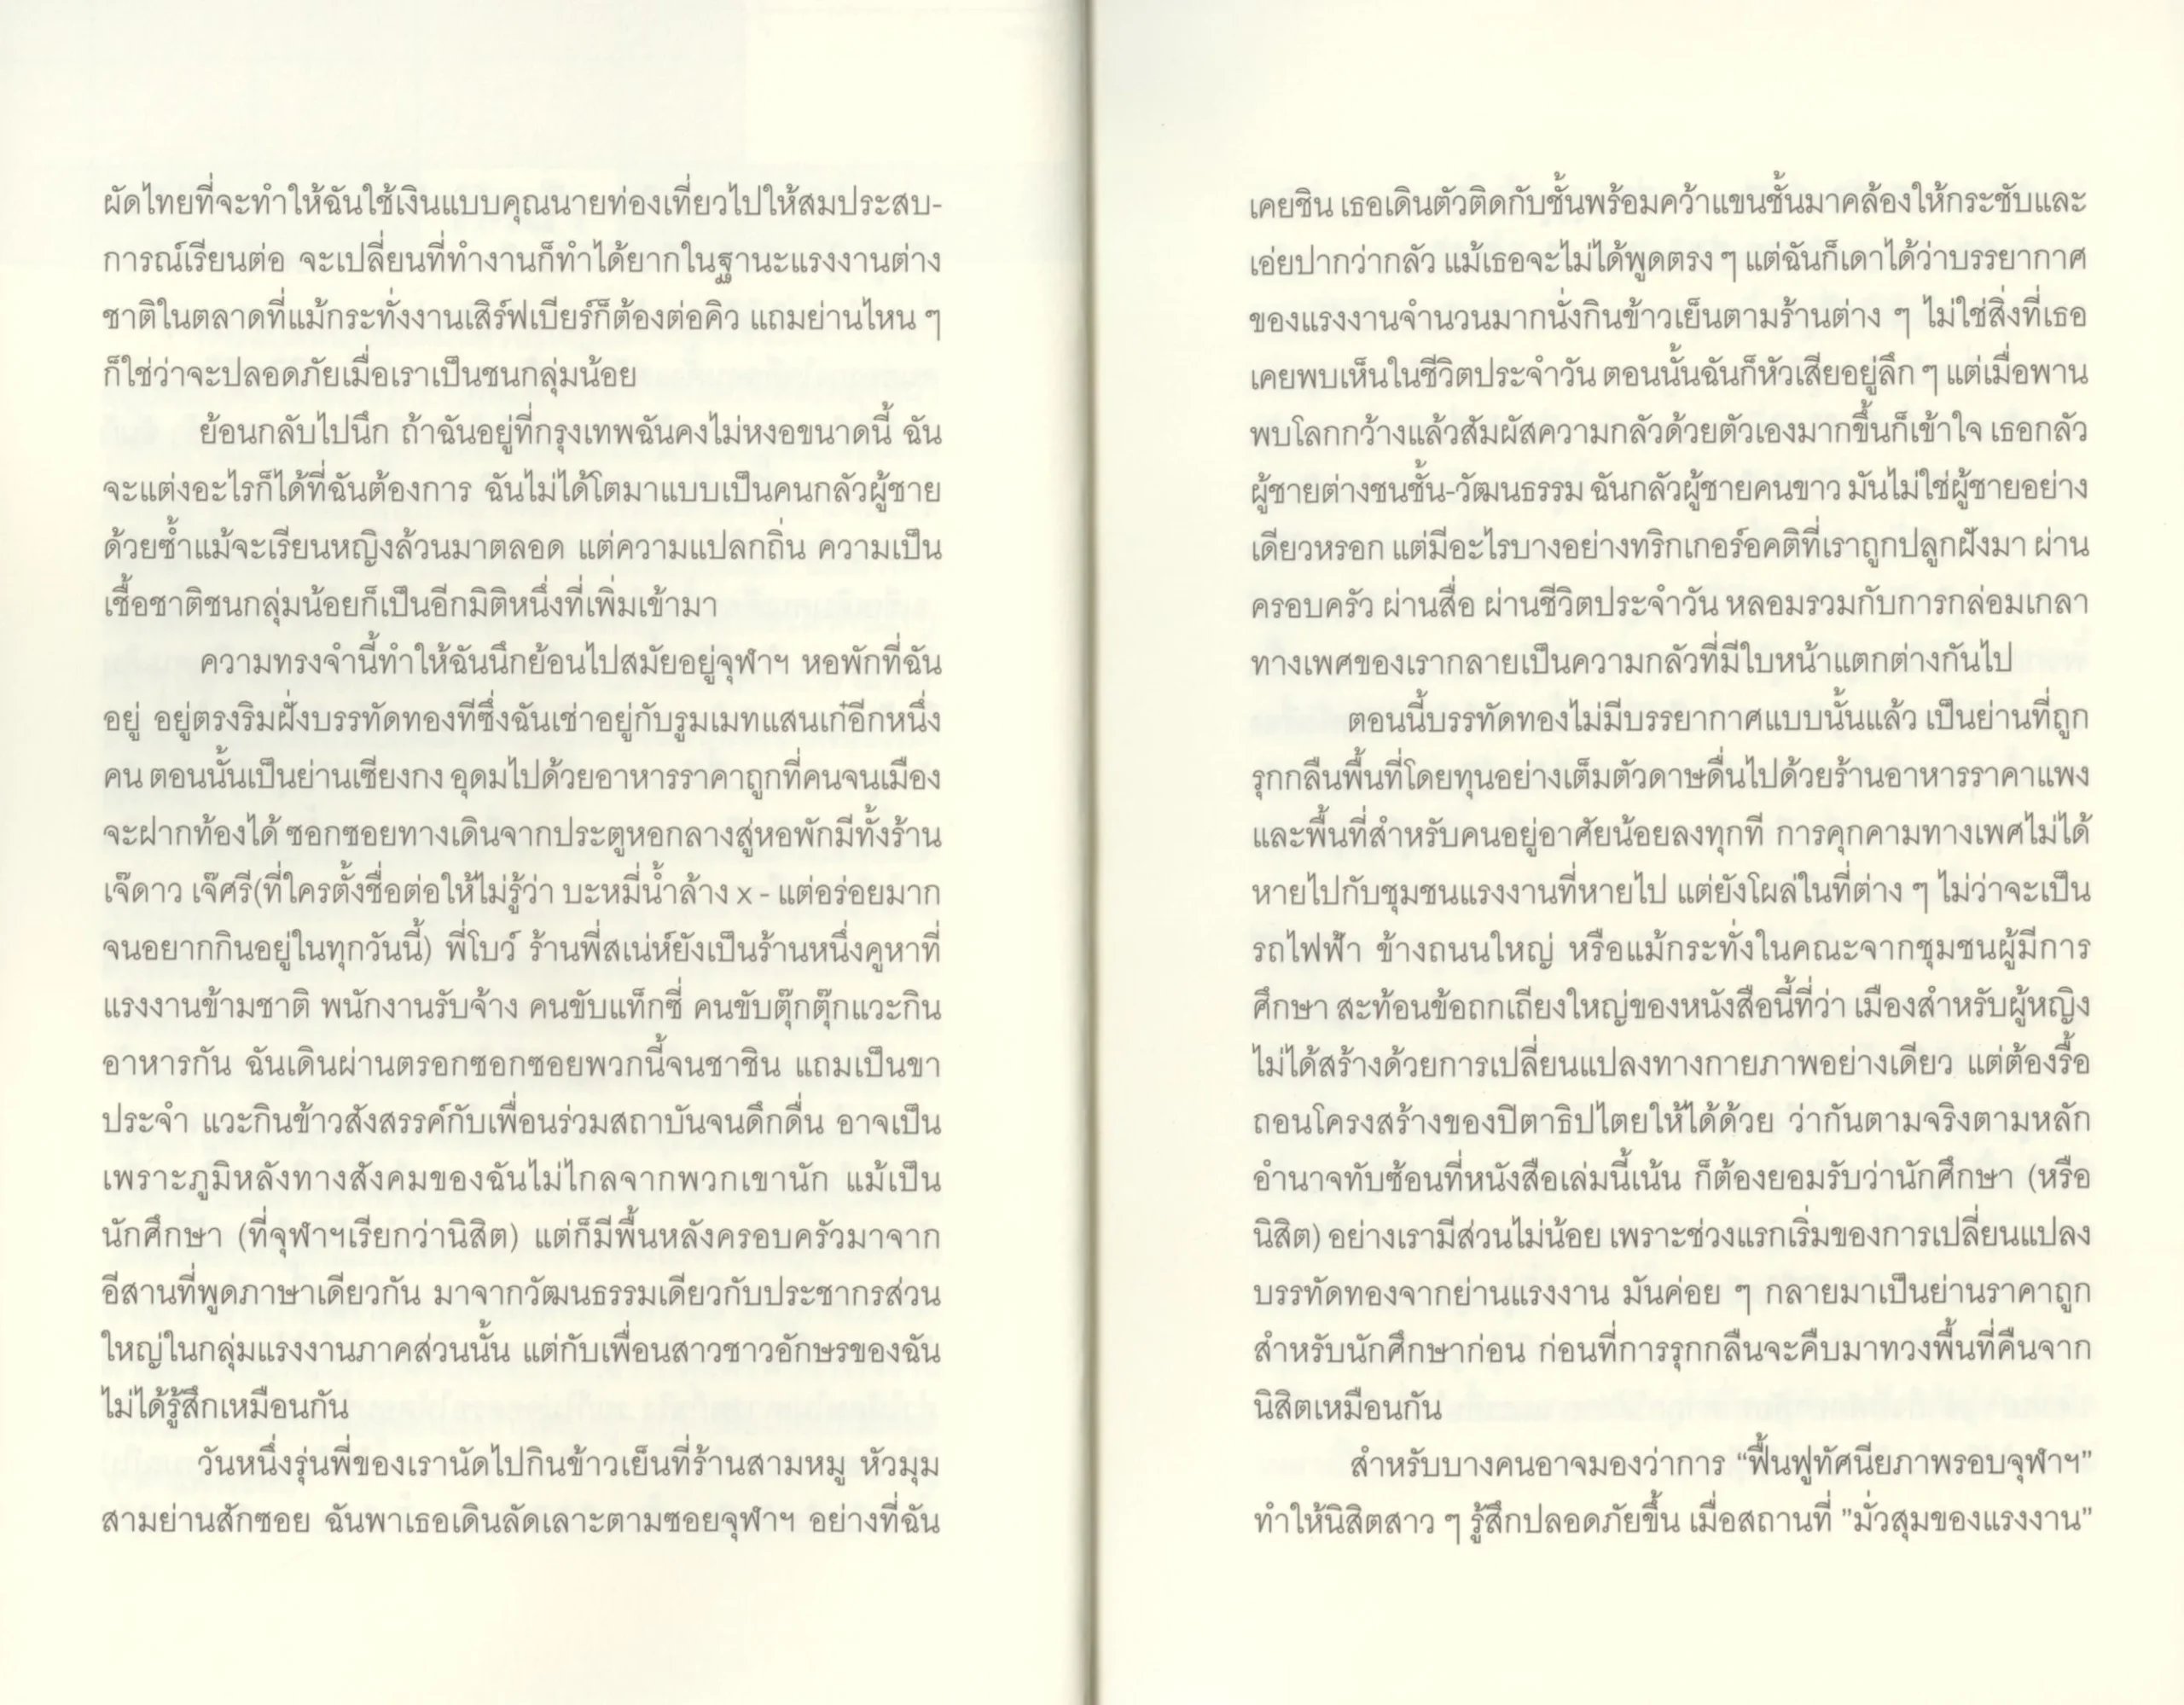 ผัดไทยที่จะทำให้ฉันใช้เงินแบบคุณนายท่องเที่ยวไปให้สมประสบ-
การณ์เรียนต่อ จะเปลี่ยนที่ทำงานก็ทำได้ยากในฐานะแรงงานต่าง
ชาติในตลาดที่แม้กระทั่งงานเสิร์ฟเบียร์ก็ต้องต่อคิว แถมย่านไหน ๆ
ก็ใช่ว่าจะปลอดภัยเมื่อเราเป็นชนกลุ่มน้อย
ย้อนกลับไปนึก ถ้าฉันอยู่ที่กรุงเทพฉันคงไม่หงอขนาดนี้ ฉัน
จะแต่งอะไรก็ได้ที่ฉันต้องการ ฉันไม่ได้โตมาแบบเป็นคนกลัวผู้ชาย
ด้วยซ้ำแม้จะเรียนหญิงล้วนมาตลอด แต่ความแปลกถิ่น ความเป็น
เชื้อชาติชนกลุ่มน้อยก็เป็นอีกมิติหนึ่งที่เพิ่มเข้ามา
ความทรงจำนี้ทำให้ฉันนึกย้อนไปสมัยอยู่จุฬาฯ หอพักที่ฉัน
อยู่ อยู่ตรงริมฝั่งบรรทัดทองทีซึ่งฉันเช่าอยู่กับรูมเมทแสนเก๋อีกหนึ่ง
คน ตอนนั้นเป็นย่านเซียงกง อุดมไปด้วยอาหารราคาถูกที่คนจนเมือง
จะฝากท้องได้ ซอกซอยทางเดินจากประตูหอกลางสู่หอพักมีทั้งร้าน
เจ๊ดาว เจ๊ศรี(ที่ใครตั้งชื่อต่อให้ไม่รู้ว่า บะหมี่น้ำล้าง x - แต่อร่อยมาก
จนอยากกินอยู่ในทุกวันนี้) พี่โบว์ ร้านพี่สเน่ห์ยังเป็นร้านหนึ่งคูหาที่
แรงงานข้ามชาติ พนักงานรับจ้าง คนขับแท็กซี่ คนขับตุ๊กตุ๊กแวะกิน
อาหารกัน ฉันเดินผ่านตรอกซอกซอยพวกนี้จนชาชิน แถมเป็นขา
ประจำ แวะกินข้าวสังสรรค์กับเพื่อนร่วมสถาบันจนดึกดื่น อาจเป็น
เพราะภูมิหลังทางสังคมของฉันไม่ไกลจากพวกเขานัก แม้เป็น
นักศึกษา (ที่จุฬาฯเรียกว่านิสิต) แต่ก็มีพื้นหลังครอบครัวมาจาก
อีสานที่พูดภาษาเดียวกัน มาจากวัฒนธรรมเดียวกับประชากรส่วน
ใหญ่ในกลุ่มแรงงานภาคส่วนนั้น แต่กับเพื่อนสาวชาวอักษรของฉัน
ไม่ได้รู้สึกเหมือนกัน
วันหนึ่งรุ่นพี่ของเรานัดไปกินข้าวเย็นที่ร้านสามหมู หัวมุม
สามย่านสักซอย ฉันพาเธอเดินลัดเลาะตามซอยจุฬาฯ อย่างที่ฉัน
เคยชิน เธอเดินตัวติดกับชั้นพร้อมคว้าแขนชั้นมาคล้องให้กระชับและ
เอ่ยปากว่ากลัว แม้เธอจะไม่ได้พูดตรง ๆ แต่ฉันก็เดาได้ว่าบรรยากาศ
ของแรงงานจำนวนมากนั่งกินข้าวเย็นตามร้านต่าง ๆ ไม่ใช่สิ่งที่เธอ
เคยพบเห็นในชีวิตประจำวัน ตอนนั้นฉันก็หัวเสียอยู่ลึก ๆ แต่เมื่อพาน
พบโลกกว้างแล้วสัมผัสความกลัวด้วยตัวเองมากขึ้นก็เข้าใจ เธอกลัว
ผู้ชายต่างชนชั้น-วัฒนธรรม ฉันกลัวผู้ชายคนขาว มันไม่ใช่ผู้ชายอย่าง
เดียวหรอก แต่มีอะไรบางอย่างทริกเกอร์อคติที่เราถูกปลูกฝังมา ผ่าน
ครอบครัว ผ่านสื่อ ผ่านชีวิตประจำวัน หลอมรวมกับการกล่อมเกลา
ทางเพศของเรากลายเป็นความกลัวที่มีใบหน้าแตกต่างกันไป
ตอนนี้บรรทัดทองไม่มีบรรยากาศแบบนั้นแล้ว เป็นย่านที่ถูก
รุกกลืนพื้นที่โดยทุนอย่างเต็มตัวดาษดื่นไปด้วยร้านอาหารราคาแพง
และพื้นที่สำหรับคนอยู่อาศัยน้อยลงทุกที การคุกคามทางเพศไม่ได้
หายไปกับชุมชนแรงงานที่หายไป แต่ยังโผล่ในที่ต่าง ๆ ไม่ว่าจะเป็น
รถไฟฟ้า ข้างถนนใหญ่ หรือแม้กระทั่งในคณะจากชุมชนผู้มีการ
ศึกษา สะท้อนข้อถกเถียงใหญ่ของหนังสือนี้ที่ว่า เมืองสำหรับผู้หญิง
ไม่ได้สร้างด้วยการเปลี่ยนแปลงทางกายภาพอย่างเดียว แต่ต้องรื้อ
ถอนโครงสร้างของปิตาธิปไตยให้ได้ด้วย ว่ากันตามจริงตามหลัก
อำนาจทับซ้อนที่หนังสือเล่มนี้เน้น ก็ต้องยอมรับว่านักศึกษา (หรือ
นิสิต) อย่างเรามีส่วนไม่น้อย เพราะช่วงแรกเริ่มของการเปลี่ยนแปลง
บรรทัดทองจากย่านแรงงาน มันค่อย ๆ กลายมาเป็นย่านราคาถูก
สำหรับนักศึกษาก่อน ก่อนที่การรุกกลืนจะคืบมาทวงพื้นที่คืนจาก
นิสิตเหมือนกัน
สำหรับบางคนอาจมองว่าการ "ฟื้นฟูทัศนียภาพรอบจุฬาฯ"
ทำให้นิสิตสาว ๆ รู้สึกปลอดภัยขึ้น เมื่อสถานที่ "มั่วสุมของแรงงาน"